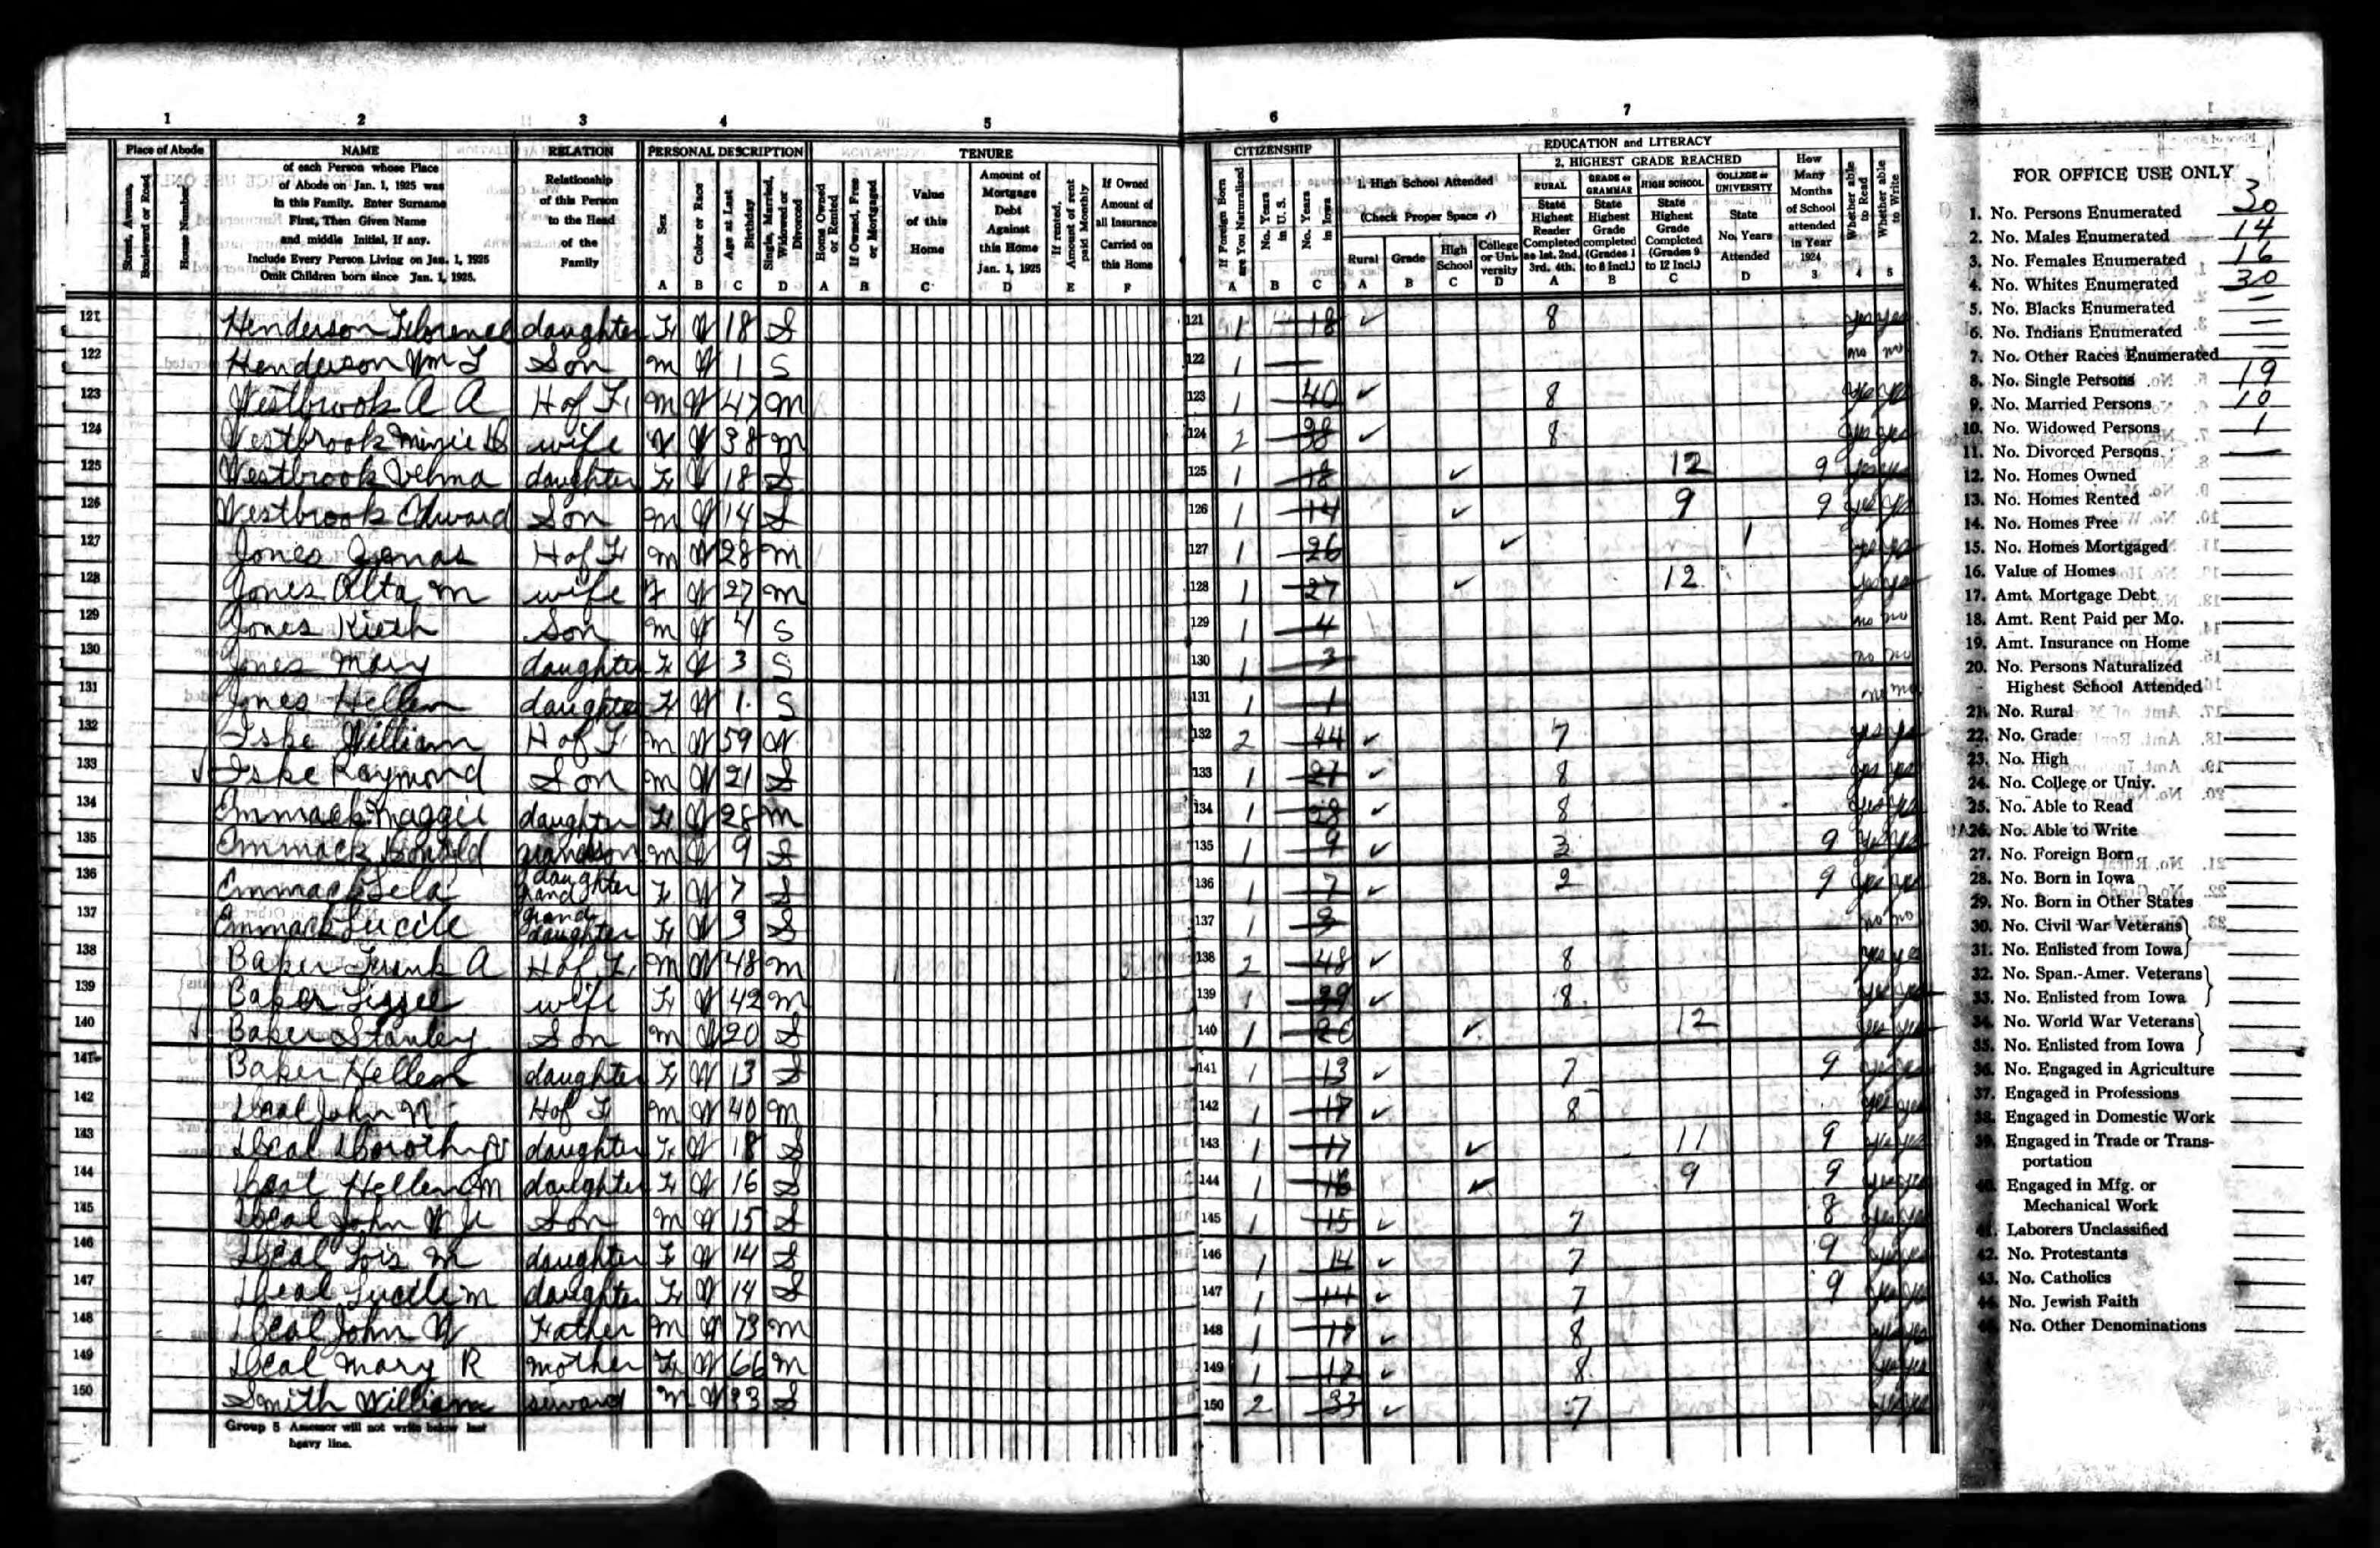 1 2 3 4 5 6 7
Place of Abode
Street, Avenue, Boulevard or Road
House Number
NAME
of each Person whose Place
of Abode on Jan. 1, 1925 was
in this Family. Enter Surname
First, Then Given Name
and middle Initial, If any.
Include Every Person Living on Jan. 1, 1925
Omit Children born since Jan. 1, 1925.
RELATION
Relationship
of this Person
to the Head
of the
Family
PERSONAL DESCRIPTION
Sex
Color or Race
Age at Last Birthday
Single, Married, Widowed or Divorced
A B C D
TENURE
Home Owned or Rented
If Owned, Free or Mortgaged
Value
of this
Home
Amount of
Mortgage
Debt
Against
this Home
Jan. 1, 1925
If rented, Amount of rent paid Monthly
If Owned
Amount of
all Insurance
Carried on
this Home
A B C D E F
CITIZENSHIP
If Foreign Born are You Naturalized
No. Years in U. S.
No. Years in Iowa
A B C
EDUCATION and LITERACY
1. High School Attended
(Check Proper Space ✓)
Rural Grade High School College or University
A B C D
2. HIGHEST GRADE REACHED
RURAL
State Highest Reader Completed as 1st. 2nd. 3rd. 4th.
GRADE or GRAMMAR
State Highest Grade completed (Grades 1 to 8 Incl.)
HIGH SCHOOL
State Highest Grade Completed (Grades 9 to 12 Incl.)
COLLEGE or UNIVERSITY
State No. Years Attended
A B C D
How Many Months of School attended in Year 1924
3
Whether able to Read
4
Whether able to Write
5
121 Henderson Florence daughter F W 18 S 121 1 18 ✓ 8 yes yes
122 Henderson Wm L Son m W 1 S 122 1 — no no
123 Westbrook A A H of F m W 47 m 123 1 40 ✓ 8 yes yes
124 Westbrook Minie wife W 38 m 124 2 38 ✓ 8 yes yes
125 Westbrook Velma daughter F W 18 S 125 1 18 ✓ 12 9 yes yes
126 Westbrook Edward Son m W 14 S 126 1 14 ✓ 9 9 yes yes
127 Jones Jonas H of F m W 28 m 127 1 26 ✓ 1 yes yes
128 Jones Alta m wife F W 27 m 128 1 27 ✓ 12 yes yes
129 Jones Kieth Son m W 4 S 129 1 4 no no
130 Jones Mary daughter F W 3 S 130 1 3 no no
131 Jones Hellen daughter F W 1 S 131 1 1 no no
132 Iske William H of F m W 59 W 132 2 44 ✓ 7 yes yes
133 ✓ Iske Raymond Son m W 21 S 133 1 21 ✓ 8 yes yes
134 Emmack Maggie daughter F W 28 m 134 1 28 ✓ 8 yes yes
135 Emmack Donald grandson m W 9 S 135 1 9 ✓ 3 9 yes yes
136 Emmack Lela grand daughter F W 7 S 136 1 7 ✓ 2 9 yes yes
137 Emmack Lucile grand daughter F W 3 S 137 1 3 no no
138 Baker Frank A H of F m W 48 m 138 2 48 ✓ 8 yes yes
139 Baker Lizzie wife F W 42 m 139 1 39 ✓ 8 yes yes
140 ✓ Baker Stanley Son m W 20 S 140 1 20 ✓ 12 yes yes
141 Baker Hellen daughter F W 13 S 141 1 13 ✓ 7 9 yes yes
142 Deal John W H of F m W 40 m 142 1 17 ✓ 8 yes yes
143 Deal Dorothy daughter F W 18 S 143 1 17 ✓ 11 9 yes yes
144 Deal Hellen M daughter F W 16 S 144 1 16 ✓ 9 9 yes yes
145 Deal John W Jr Son m W 15 S 145 1 15 ✓ 7 8 yes yes
146 Deal Lois M daughter F W 14 S 146 1 14 ✓ 7 9 yes yes
147 Deal Lucille M daughter F W 14 S 147 1 14 ✓ 7 9 yes yes
148 Deal John W Father m W 73 m 148 1 17 ✓ 8 yes yes
149 Deal Mary R mother F W 66 m 149 1 ✓ 8 yes yes
150 Smith William m W 33 S 150 2 33 ✓ 7 yes yes
Group 5 Assessor will not write below last
heavy line.
FOR OFFICE USE ONLY
1. No. Persons Enumerated 30
2. No. Males Enumerated 14
3. No. Females Enumerated 16
4. No. Whites Enumerated 30
5. No. Blacks Enumerated —
6. No. Indians Enumerated —
7. No. Other Races Enumerated —
8. No. Single Persons 19
9. No. Married Persons 10
10. No. Widowed Persons 1
11. No. Divorced Persons —
12. No. Homes Owned
13. No. Homes Rented
14. No. Homes Free
15. No. Homes Mortgaged
16. Value of Homes
17. Amt. Mortgage Debt
18. Amt. Rent Paid per Mo.
19. Amt. Insurance on Home
20. No. Persons Naturalized
Highest School Attended
21. No. Rural
22. No. Grade
23. No. High
24. No. College or Univ.
25. No. Able to Read
26. No. Able to Write
27. No. Foreign Born
28. No. Born in Iowa
29. No. Born in Other States
30. No. Civil War Veterans
31. No. Enlisted from Iowa
32. No. Span.-Amer. Veterans
33. No. Enlisted from Iowa
34. No. World War Veterans
35. No. Enlisted from Iowa
36. No. Engaged in Agriculture
37. Engaged in Professions
38. Engaged in Domestic Work
39. Engaged in Trade or Trans-
portation
40. Engaged in Mfg. or
Mechanical Work
41. Laborers Unclassified
42. No. Protestants
43. No. Catholics
44. No. Jewish Faith
45. No. Other Denominations